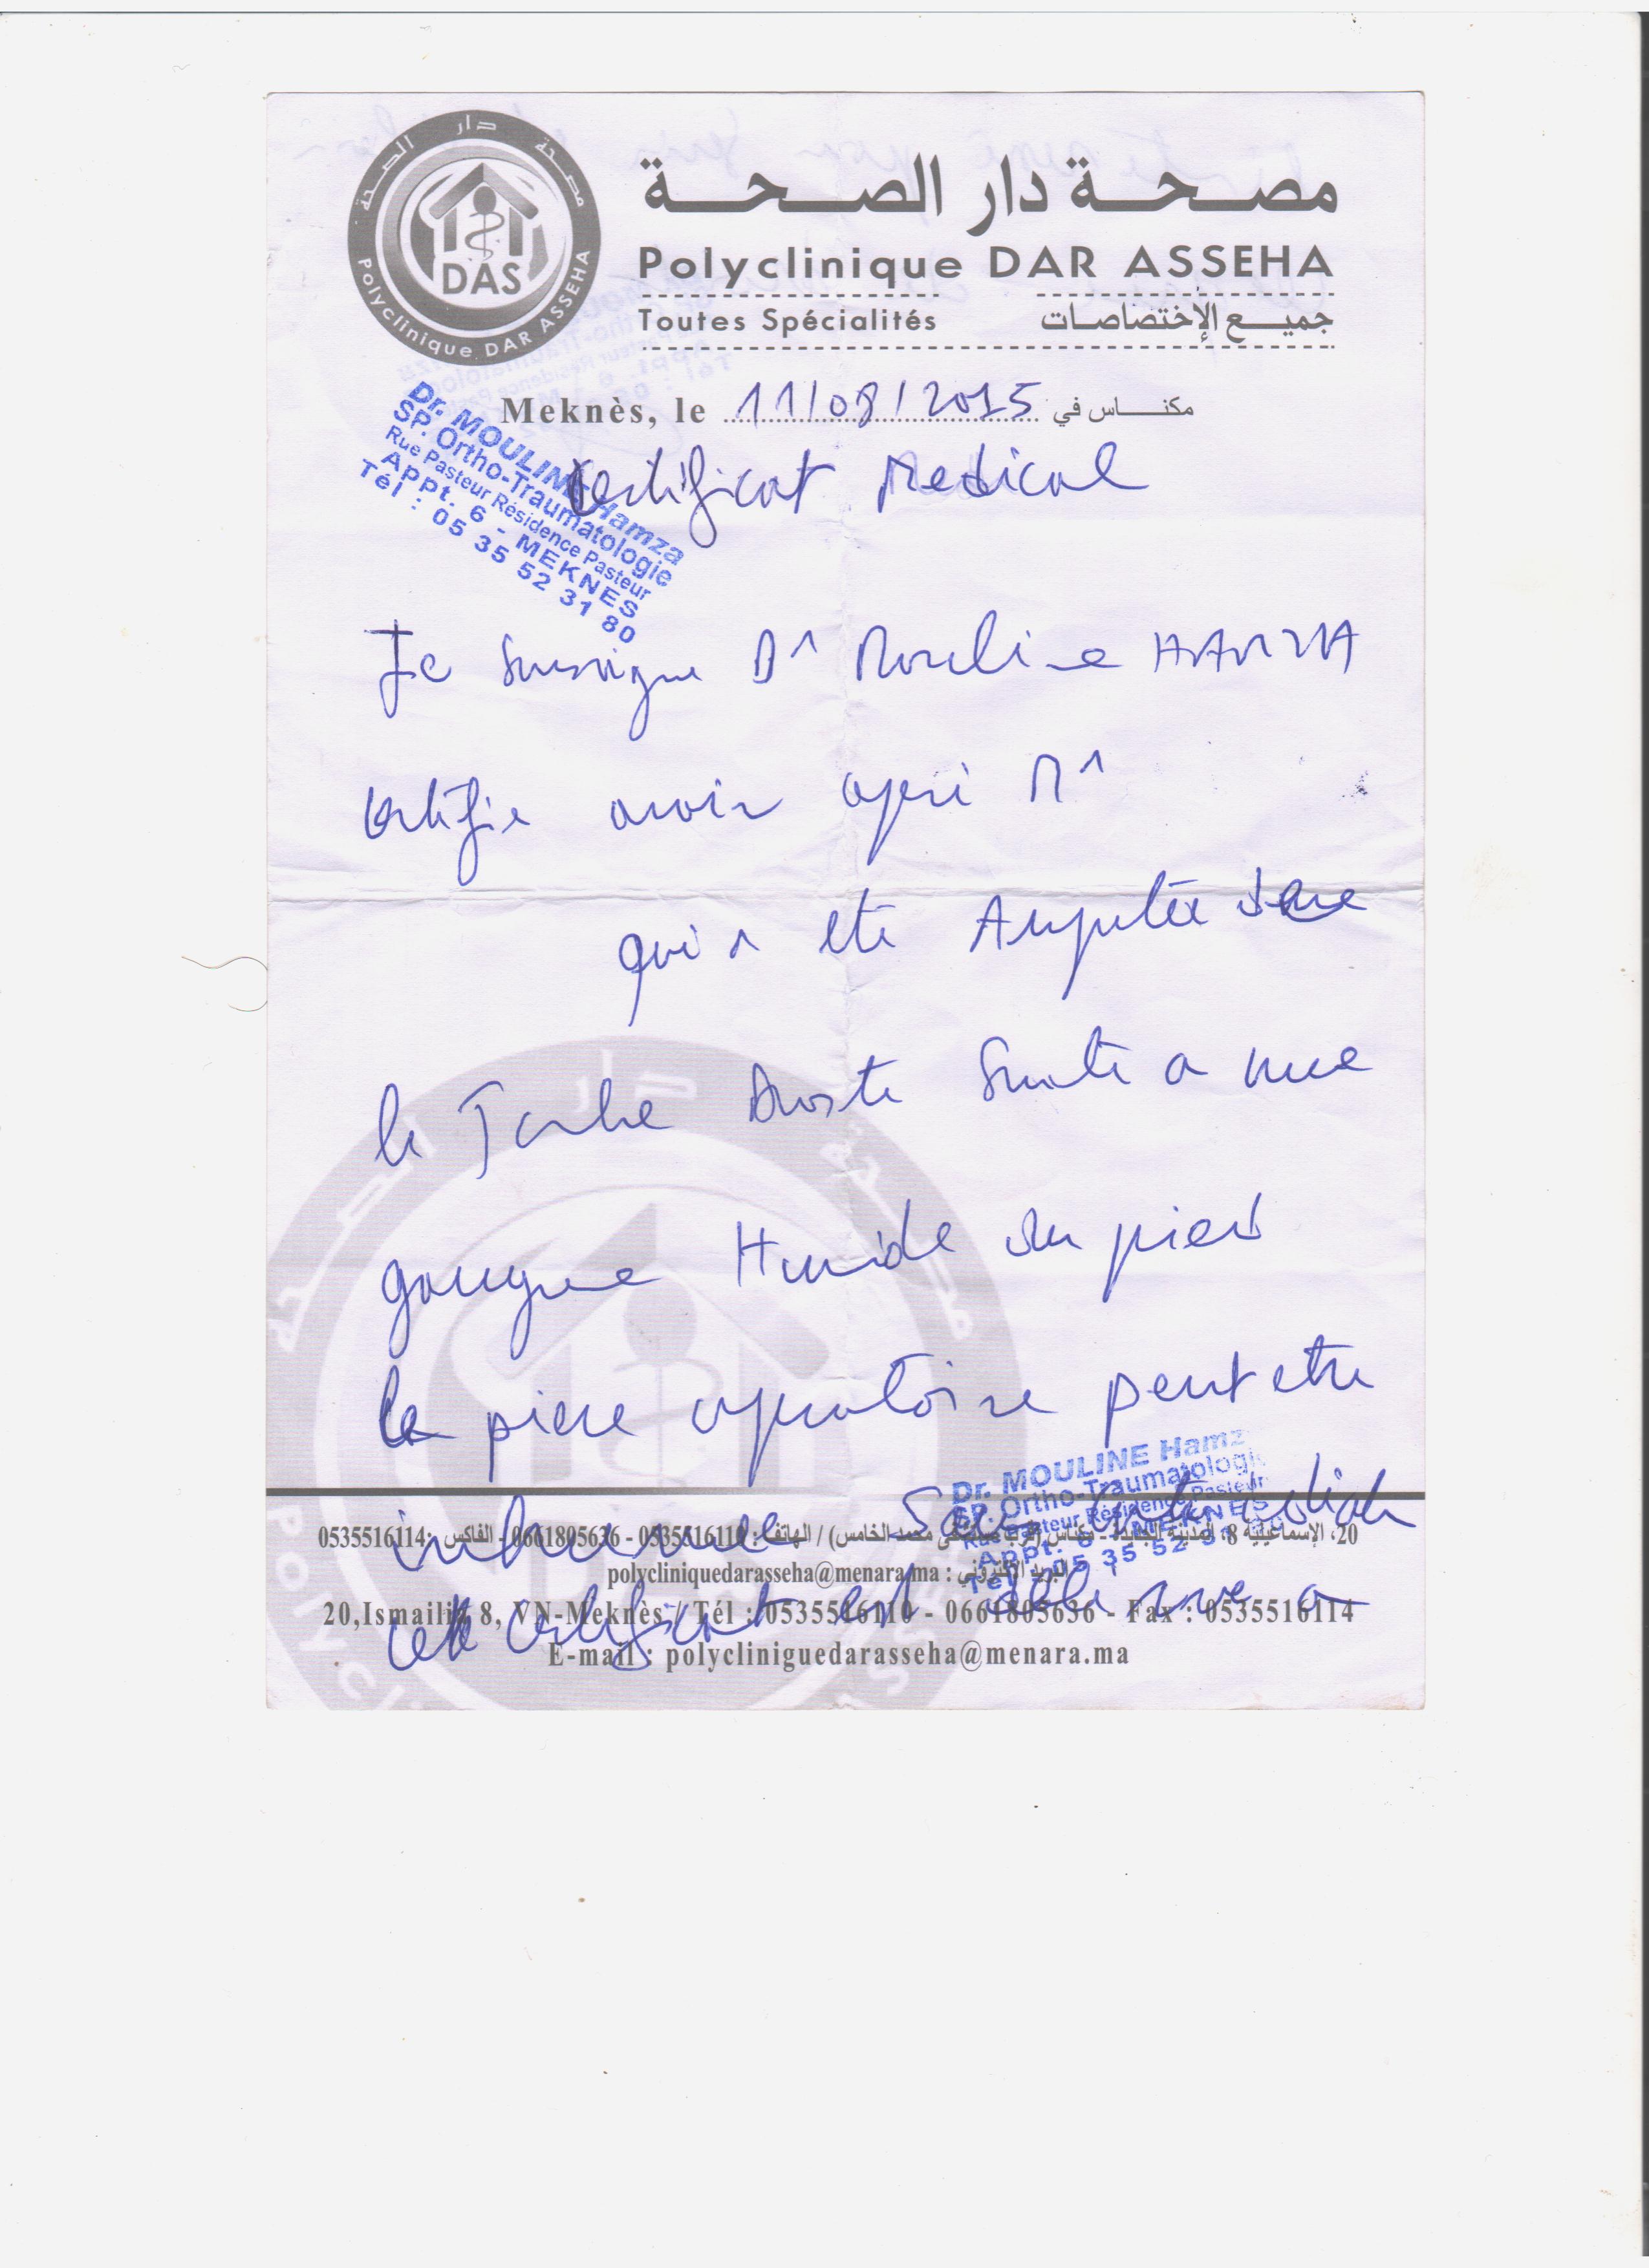 مصحة دار الصحة
DAS
Polyclinique DAR ASSEHA
مصحة دار الصحة
Polyclinique DAR ASSEHA
Toutes Spécialités جميع الإختصاصات
Meknès, le 11/08/2015 مكناس في
Dr. MOULINE Hamza
SP. Ortho-Traumatologie
Rue Pasteur Résidence Pasteur
Appt. 6 - MEKNES
Tél : 05 35 52 31 80
Certificat Medical
Je soussigne Dr Mouline HAMZA
certifie avoir opéré Mr
qui a été Amputée de
la Jambe Droite Suite a une
gangrene Humide du pied
la piece operatoire peut etre
inhumee Sans
Dr. MOULINE Hamz
SP. Ortho-Traumatologi
Rue Pasteur Résidence Pasteur
Appt. 6 MEKNES
Tél 05 35 52 3
20، الإسماعيلية 8، المدينة الجديدة - مكناس محمد الخامس) / الهاتف : 0535516110 - 0661805636 - الفاكس : 0535516114
polycliniquedarasseha@menara.ma : البريد الإلكتروني
cet certificat est delivree a
20,Ismailia 8, VN-Meknès / Tél : 0535516110 - 0661805636 - Fax : 0535516114
E-mail : polycliniguedarasseha@menara.ma